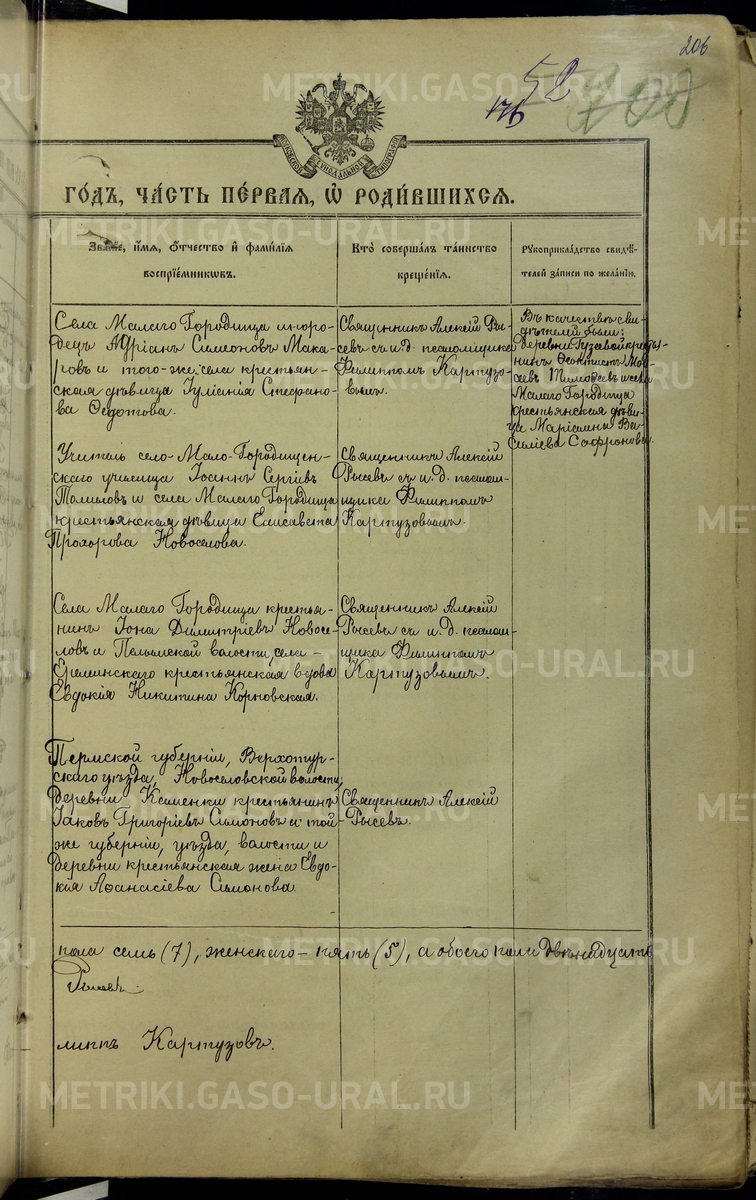 206
52
176
200
МОСКОВСКОЙ СѴНОДАЛЬНОЙ ТИПОГРАФІИ
ГО́ДЪ, ЧА́СТЬ ПЕ́РВАЯ, Ѽ РОДИ́ВШИХСЯ.
Зва́ніе, и́мя, о́тчество и҆ фами́лія
воспріе́мниковъ.
Кто̀ соверша́лъ та́инство
креще́нія.
Рꙋкоприкла́дство свидѣ́-
телей за́писи по жела́нію.
Села Малаго Городища иноро-
децъ Адріанъ Симеоновъ Мака-
ровъ и того-же села крестьян-
ская дѣвица Іуліанія Стефано-
ва Федотова.
Священникъ Алексій Ры-
севъ съ и. д. псаломщика
Филиппомъ Картузо-
вымъ.
Въ качествѣ сви-
дѣтелей были:
деревни Гузеевой кресть-
нинъ Феоктистъ Мои-
сеевъ Тимофеевъ и села
Малаго Городища
крестьянская дѣви-
ца Маріамна Ва-
силіева Софронова.
Учитель село-Мало-Городищен-
скаго училища Іоаннъ Сергіевъ
Томиловъ и села Малаго Городища
крестьянская дѣвица Елисавета
Прохорова Новоселова.
Священникъ Алексій
Рысевъ съ и. д. псалом-
щика Филиппомъ
Картузовымъ.
Села Малаго Городища крестья-
нинъ Іона Димитріевъ Новосе-
ловъ и Пелымской волости, села
крестьянская вдова
Евдокія Никитина Корповская.
Священникъ Алексій
Рысевъ съ и. д. псалом-
щика Филиппомъ
Картузовымъ.
Пермской губерніи, Верхотур-
скаго уѣзда, Новоселовской волости,
деревни Каменки крестьянинъ
Іаковъ Григоріевъ Симоновъ и той-
же губерніи, уѣзда, волости и
деревни крестьянская жена Евдо-
кія Аѳанасіева Симонова.
Священникъ Алексій
Рысевъ.
пола семь (7), женскаго - пять (5), а обоего пола двѣнадцать
Рысевъ.
липпъ Картузовъ.
METRIKI.GASO-URAL.RU